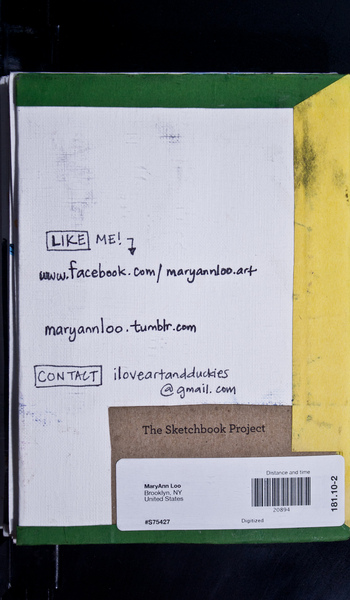 LIKE ME!
www.facebook.com/maryannloo.art
maryannloo.tumblr.com
CONTACT iloveartandduckies
@gmail.com
The Sketchbook Project
Distance and time
MaryAnn Loo
Brooklyn, NY
United States
20894
#S75427
Digitized
181.10-2